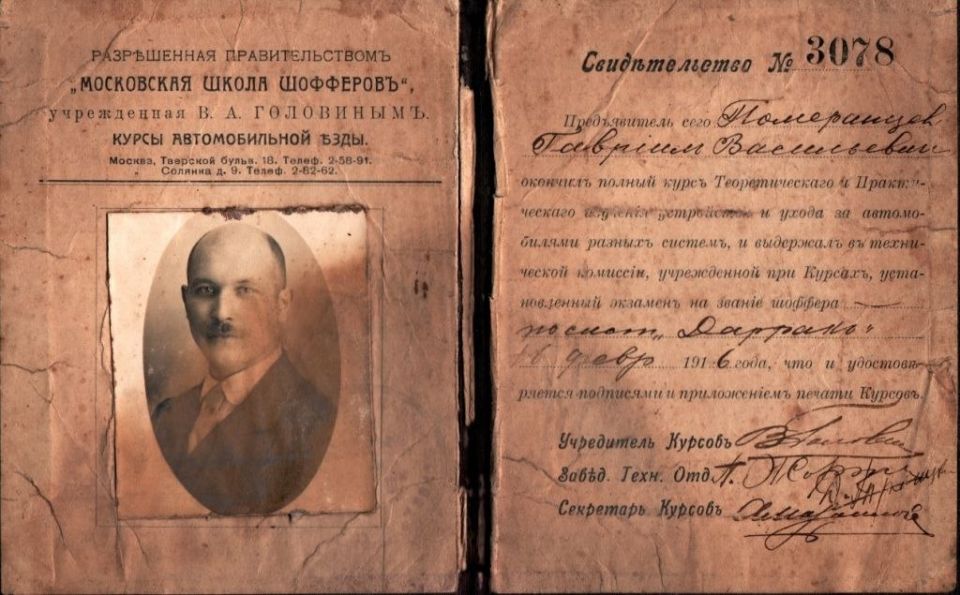 РАЗРѢШЕННАЯ ПРАВИТЕЛЬСТВОМЪ
„МОСКОВСКАЯ ШКОЛА ШОФФЕРОВЪ“,
учрежденная В. А. ГОЛОВИНЫМЪ.
КУРСЫ АВТОМОБИЛЬНОЙ ѢЗДЫ.
Москва, Тверской бульв. 18. Телеф. 2-58-91.
Солянка д. 9. Телеф. 2-82-62.
Свидѣтельство № 3078
Предъявитель сего Померанцев
Гавріилъ Васильевич
окончилъ полный курсъ Теоретическаго и Практи-
ческаго изученія устройства и ухода за автомо-
билями разныхъ системъ, и выдержалъ въ техни-
ческой комиссіи, учрежденной при Курсахъ, уста-
новленный экзаменъ на званіе шоффера
по сист „Дарракъ“
февр 1916 года, что и удостовѣ-
ряется подписями и приложеніемъ печати Курсовъ.
Учредитель Курсовъ В Головин
Завѣд. Техн. Отд.
Секретарь Курсовъ